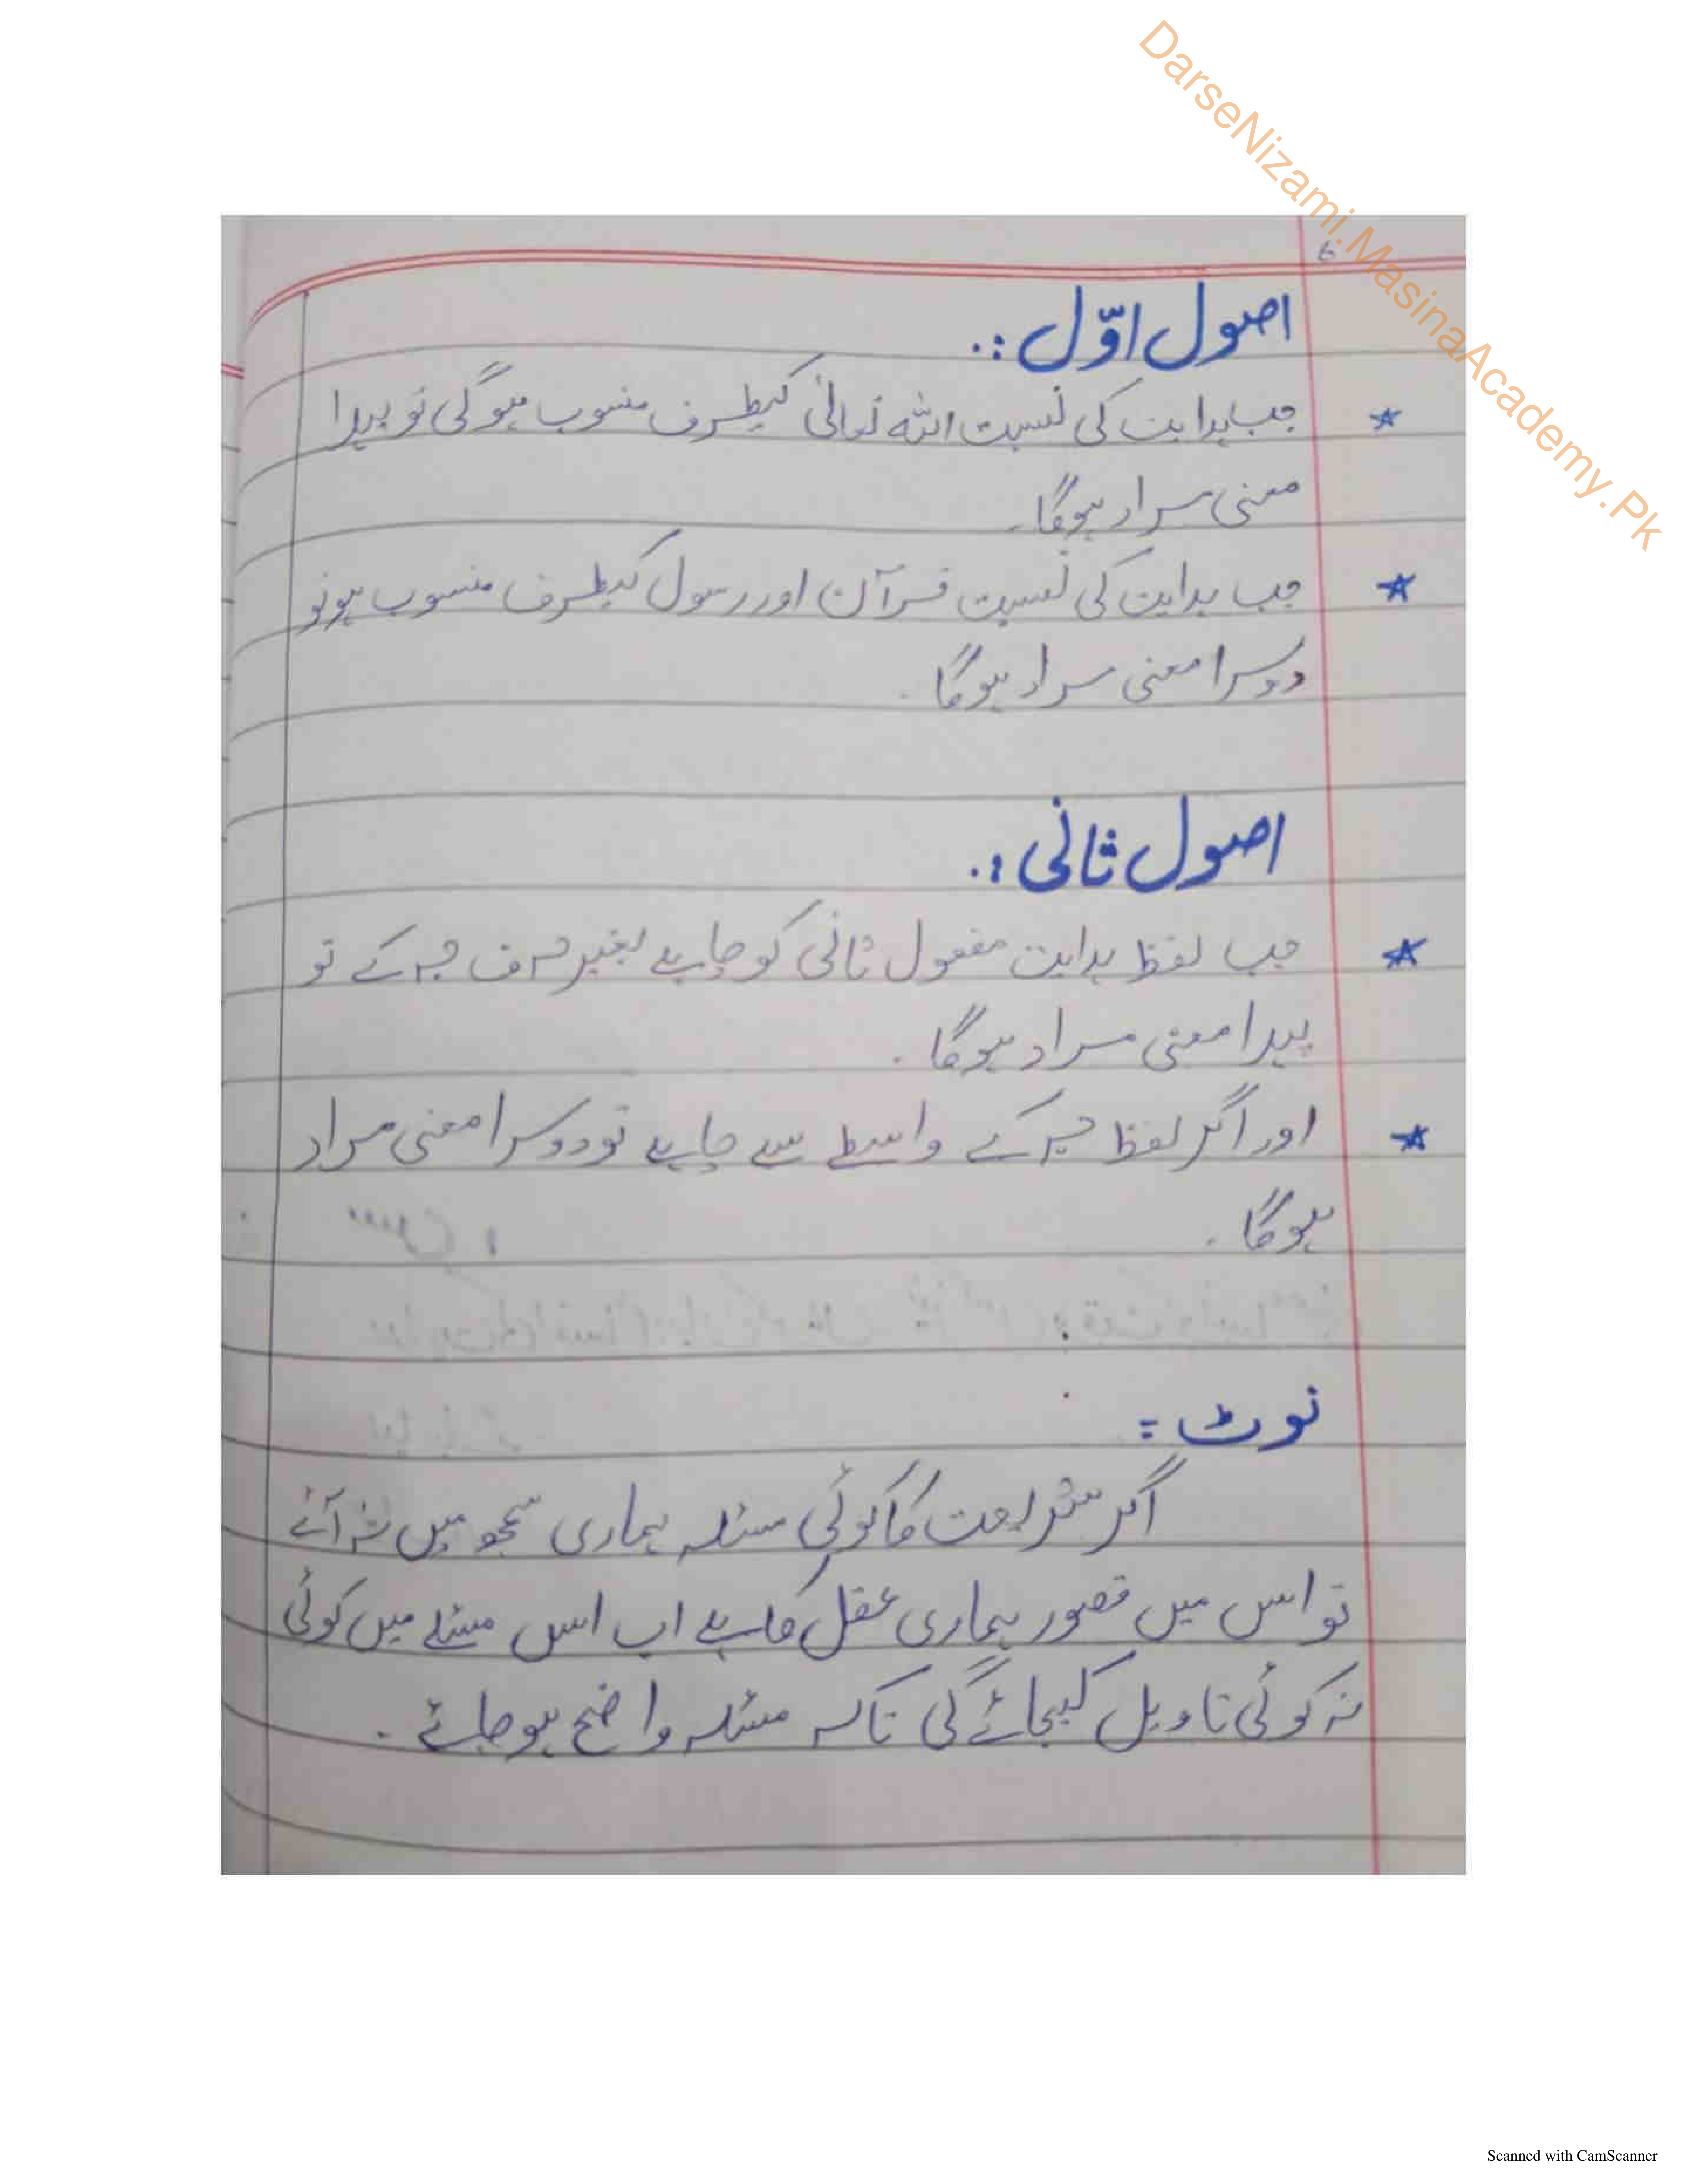 DarseNizami.MasinaAcademy.Pk
6
اصول اوّل :.
* جب ہدایت کی نسبت اللہ تعالیٰ کیطرف منسوب ہوگی تو پہلا
معنی مراد ہوگا۔
* جب ہدایت کی نسبت قرآن اور رسول کیطرف منسوب ہو تو
دوسرا معنی مراد ہوگا.
اصول ثانی :.
* جب لفظ ہدایت مفعول ثانی کو چاہے بغیر حرف جر کے تو
پہلا معنی مراد ہوگا.
* اور اگر لفظ جر کے واسطے سے چاہے تو دوسرا معنی مراد
ہوگا.
نوٹ :
اگر شریعت کا کوئی مسئلہ ہماری سمجھ میں نہ آئے
تو اس میں قصور ہماری عقل کا ہے اب اس مسئلے میں کوئی
نہ کوئی تاویل کیجائے گی تاکہ مسئلہ واضح ہو جائے.
Scanned with CamScanner